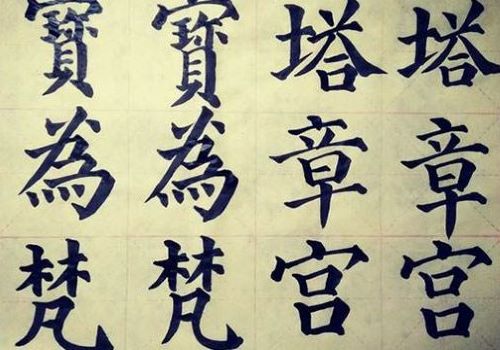 塔章宫
塔章宫
寶為梵
寶為梵